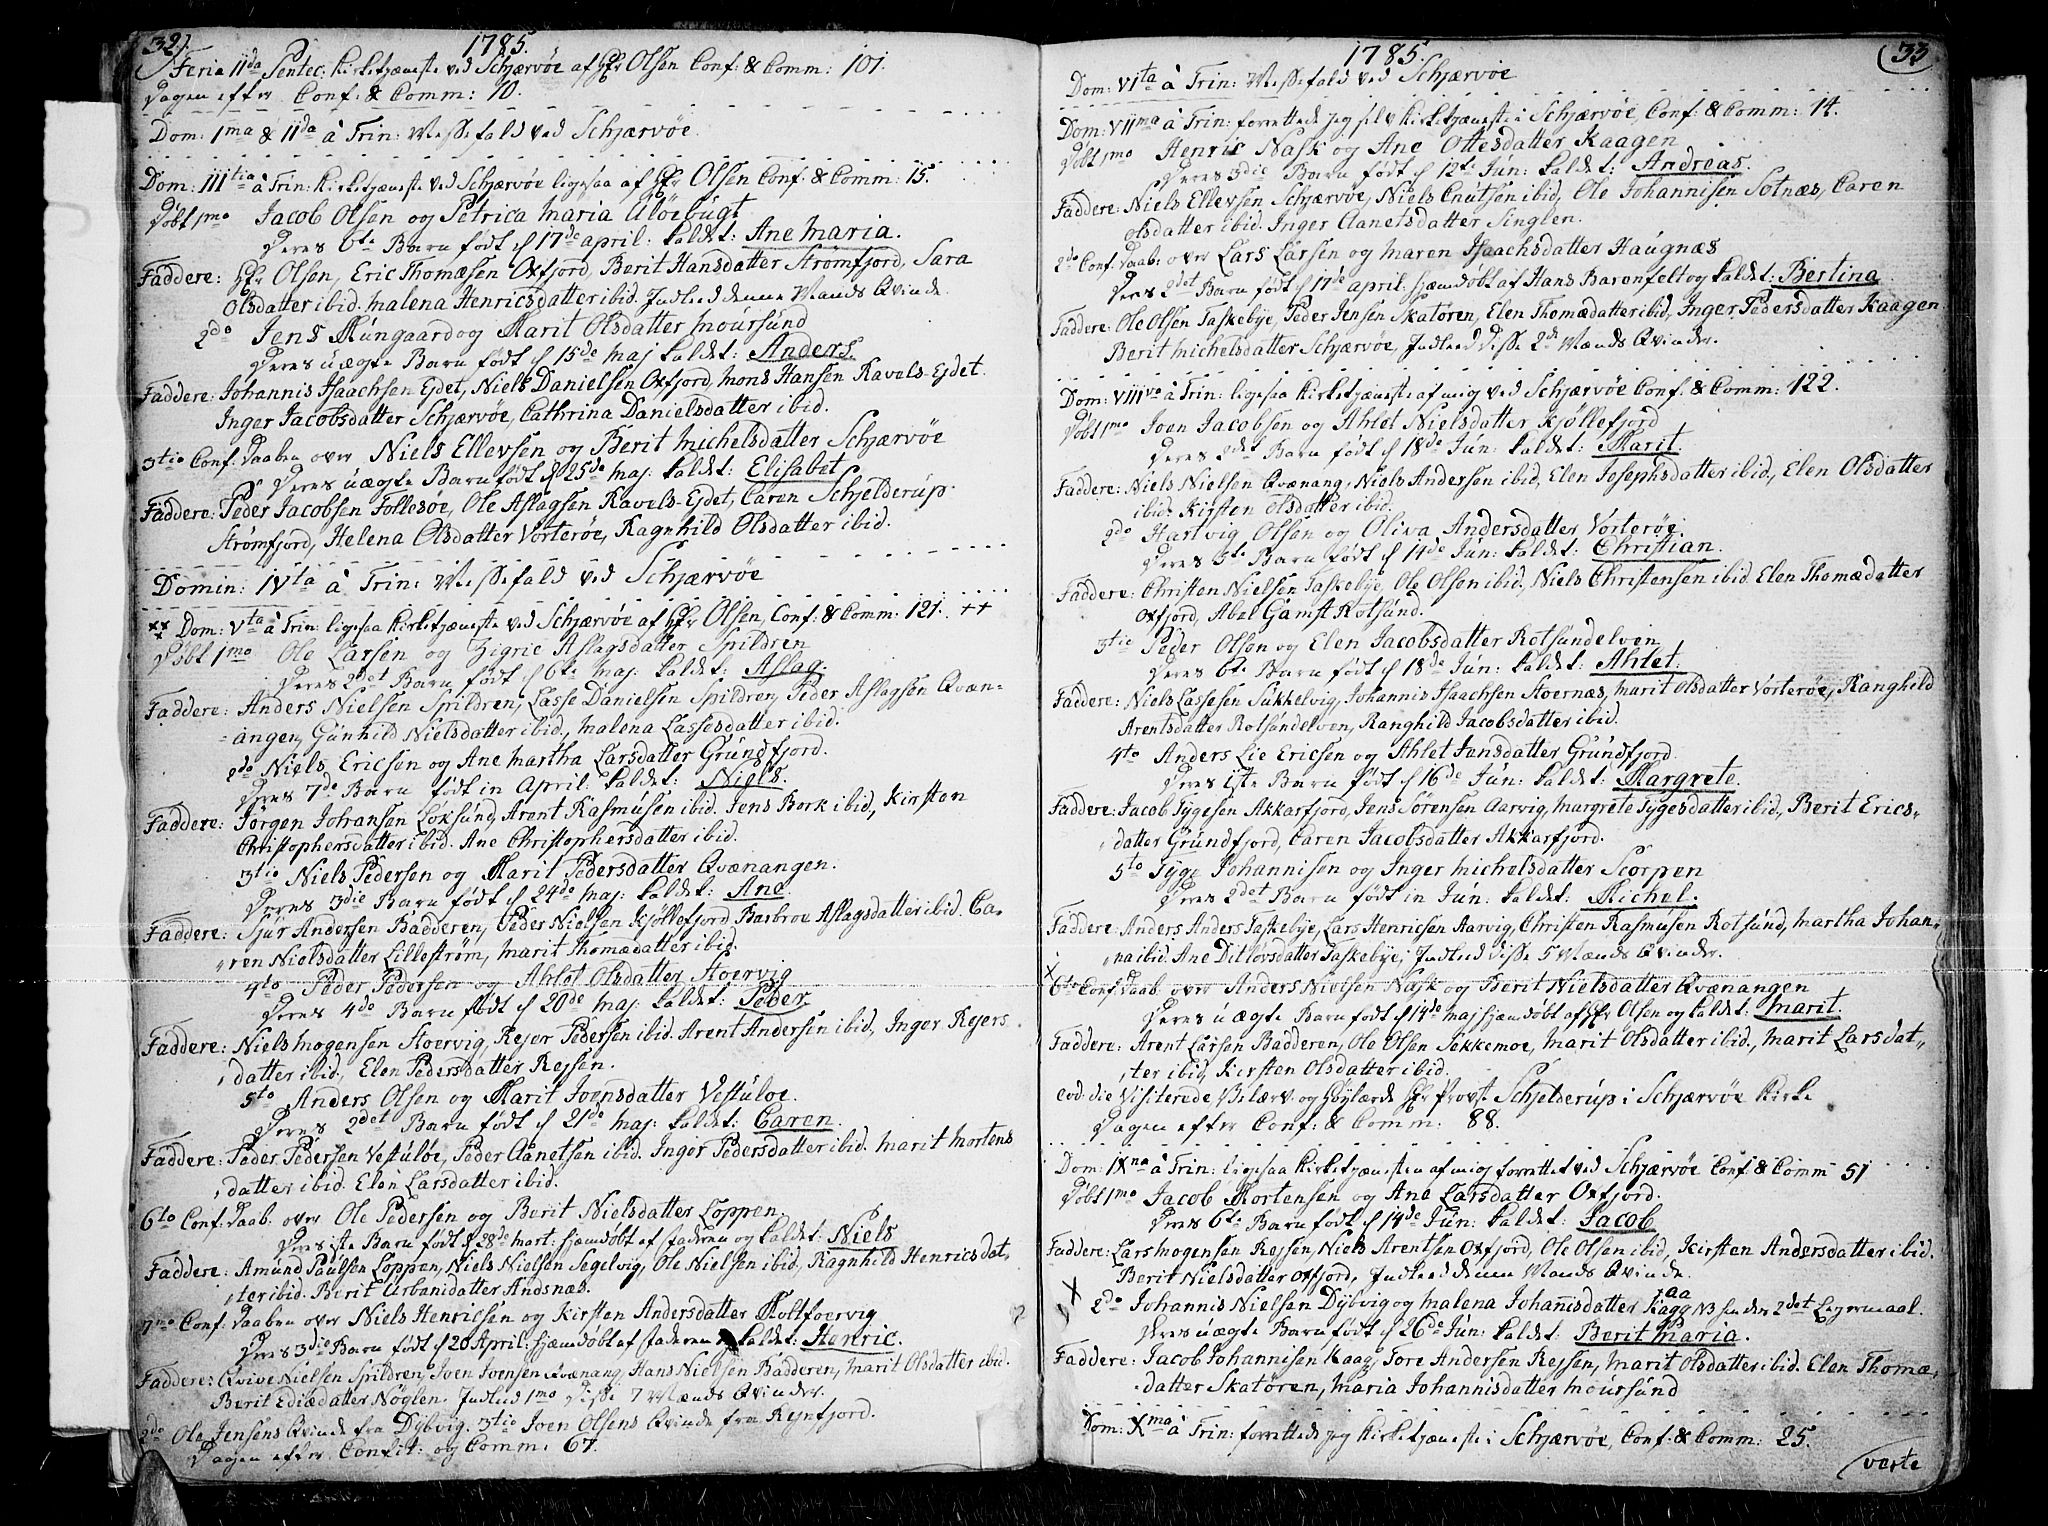 32.
1785.
Feria IIda Pentec: Kirketjæneste ved Schjærvøe af Hr Olsen Conf: & Comm: 101.
Dagen efter Conf: & Comm: 10.
Dom: 1ma & IIda à Trin: Messefald ved Schjærvøe.
Dom: IIItia à Trin: Kirketjæneste ved Schjærvøe ligesaa af Hr Olsen Conf: & Comm: 15.
Døbt 1mo Jacob Olsen og Petrica Maria Alöebugt
Deres 6te Barn født d 17de april: kaldet: Ane Maria.
Faddere: Hr Olsen, Eric Thomæsen Oxfjord, Berit Hansdatter Strømfjord, Sara
Olsdatter ibid. Malena Henricsdatter ibid. Indleed denne Mands Qvinde.
2do Jens Mungaard og Marit Olsdatter Moursund
Deres uægte Barn født d 15de Maj kaldet: Anders.
Faddere: Johannis Isaachsen Ejdet, Niels Danielsen Oxfjord, Mons Hansen Ravels-Ejdet.
Inger Jacobsdatter Schjærvøe, Cathrina Danielsdatter ibid.
3tio Conf: Daaben over Niels Ellevsen og Berit Michelsdatter Schjærvöe
Deres uægte Barn født d 25de Maj: kaldet: Elisabet
Faddere: Peder Jacobsen Follesøe, Ole Aslagsen Ravels-Ejdet, Caren Schjelderup
Strømfjord, Helena Olsdatter Vorterøe, Ragnhild Olsdatter ibid.
Domin: IVta à Trin: Messefald ved Schjærvøe
Dom: Vta à Trin: ligesaa Kirketjæneste ved Schjærvøe af Hr Olsen, Conf: & Comm: 121. ++
Døbt 1mo Ole Larsen og Zigrie Aslagsdatter Spildren
Deres 2det Barn født d 6te Maj: kaldet: Aslag.
Faddere: Anders Nielsen Spildren, Lasse Danielsen Spildren, Peder Aslagsen Qvæn-
angen, Gunhild Nielsdatter ibid., Malena Lassesdatter ibid.
2do Niels Ericsen og Ane Martha Larsdatter Grundfjord.
Deres 7de Barn født in April: kaldet: Niels.
Faddere: Jørgen Johansen Loksund, Arent Rasmusen ibid. Jens Bork ibid., Kirsten
Christophersdatter ibid. Ane Christophersdatter ibid.
3tio Niels Pedersen og Marit Pedersdatter Qvænangen.
Deres 3die Barn født d 24de Maj: kaldet: Ane
Faddere: Sjur Andersen Badderen, Peder Nielsen Kjøllefjord Barbroe Aslagsdatter ibid. Ca-
ren Nielsdatter Lillestrøm, Marit Thomædatter ibid.
4to Peder Pedersen og Ahlet Olsdatter Stoervig
Deres 4de Barn født d 20de Maj: kaldet: Peder
Faddere: Niels Mogensen Stoervig, Rejer Pedersen ibid. Arent Andersen ibid, Inger Rejers
datter ibid, Elen Pedersdatter Rejsen.
5to Anders Olsen og Marit Joensdatter Vestuløe.
Deres 2det Barn født d 21de Maj: kaldet: Caren.
Faddere: Peder Pedersen Vestuløe, Peder Aanetsen ibid. Inger Pedersdatter ibid. Marit Mortens
datter ibid. Elen Larsdatter ibid.
6to Conf: Daab. over Ole Pedersen og Berit Nielsdatter Loppen
Deres 1ste Barn født d 28de Mart: hjæmdøbt af faderen og kaldet: Niels
Faddere: Amund Paulsen Loppen, Niels Nielsen Segelvig, Ole Nielsen ibid, Ragnhild Henricsdat-
ter ibid. Berit Urbanidatter Andsnæs.
7mo Conf: Daaben over Niels Henricsen og Kirsten Andersdatter Stoervig
Deres 3die Barn født d 20 April: hjæmdøbt af faderen og kaldet: Henric.
Faddere: Qvive Nielsen Spildren, Joen Joensen Qvænang, Hans Nielsen Badderen, Marit Olsdatter ibid.
Berit Ediædatter Nøglen. Indleed 1mo disse 7 Mænds Qvinder.
2do Ole Jensens Qvinde fra Dÿbvig. 3tio Joen Olsens Qvinde fra Rejnfjord.
Dagen efter Confit: og Comm: 67.
33
1785.
Dom: VIta à Trin: Messefald ved Schjærvøe
Dom: VIIma à Trin: forrettede jeg selv Kirketjæneste i Schjærvøe Conf: & Comm: 14.
Døbt 1mo Henric Nask og Ane Ottesdatter Kaagen
Deres 3die Barn født d 12te Jun: kaldet: Andreas.
Faddere: Niels Ellevsen Schjærvøe, Niels Cnutsen ibid, Ole Johannisen Sotnæs, Caren
Olsdatter ibid. Inger Aanetsdatter Singlen.
2do Conf: Daab: over Lars Larsen og Maren Isaachsdatter Haugnæs
Deres 2det Barn født d 17de april: hjæmdøbt af Hans Barenfelt og kaldet: Bertina
Faddere: Ole Olsen Taskebye, Peder Jensen Skatøren, Elen Thomædatter ibid, Inger Pedersdatter Kaagen
Berit Michelsdatter Schjærvøe, Indleed disse 2de Mænds Qvinder.
Dom: VIIIva à Trin: ligesaa Kirketjæneste af mig ved Schjærvøe Conf: & Comm: 122.
Døbt 1mo Joen Jacobsen og Ahlet Nielsdatter Kjøllefjord
Deres 2det Barn født d 18de Jun: kaldet: Marit.
Faddere: Niels Nielsen Qvænang, Niels Andersen ibid, Elen Josephsdatter ibid., Elen Olsdatter
ibid. Kirsten Olsdatter ibid.
2do Hartvig Olsen og Oliva Andersdatter Vorterøe.
Deres 5te Barn født d 14de Jun: kaldet: Christian.
Faddere: Christen Nielsen Taskebye, Ole Olsen ibid. Niels Christensen ibid. Elen Thomædatter
Oxfjord, Abel Gamst Rotsund.
3tio Peder Olsen og Elen Jacobsdatter Rotsundelven
Deres 6te Barn født d 18de Jun: kaldet: Ahlet.
Faddere: Niels Lassesen Sukkelvig, Johannis Isaachsen Stoernæs, Marit Olsdatter Vorterøe, Ranghild
Arentsdatter Rotsundelven, Ranghild Jacobsdatter ibid.
4to Anders Lie Ericsen og Ahlet Jensdatter Grundfjord.
Deres 1ste Barn født d 16de Jun: kaldet: Margrete.
Faddere: Jacob Tygesen Akkarfjord, Jens Sørensen Aarvig, Margrete Tygesdatter ibid., Berit Erics-
datter Grundfjord, Caren Jacobsdatter Akkarfjord.
5to Tyge Johannisen og Inger Michelsdatter Scorpen
Deres 2det Barn født in Jun: kaldet: Michel.
Faddere: Anders Anders Taskebye, Lars Henricsen Aarvig, Christen Rasmusen Rotsund, Martha Johan-
na ibid. Ane Ditlovsdatter Taskebye, Indleed disse 5 Mænds Qvinder.
6to Conf: Daab over Anders Nielsen Nask og Berit Nielsdatter Qvænangen
Deres uægte Barn født d 14de Maj hjæmdøbt af Hr Olsen og kaldet: Marit.
Faddere: Arent Larsen Badderen, Ole Olsen Sekkemoe, Marit Olsdatter ibid., Marit Larsdat-
ter ibid, Kirsten Olsdatter ibid.
eod. die Visiterede Velærv. og Høylærde Hr Provst Schjelderup i Schjærvøe Kirke
Dagen efter Conf: & Comm: 88.
Dom: IXna à Trin: ligesaa Kirketjænesten af mig forrettet ved Schjærvøe Conf & Comm 51
Døbt 1mo Jacob Mortensen og Ane Larsdatter Oxfjord.
Deres 6te Barn født d 14de Jun: kaldet: Jacob
Faddere: Lars Mogensen Rejsen, Niels Arentsen Oxfjord, Ole Olsen ibid, Kirsten Andersdatter ibid.
Berit Nielsdatter Oxfjord, Indleed denne Mands Qvinde.
X 2do Johannis Nielsen Dÿbvig og Malena Johannisdatter Kaag NB hendes 2det Lejermaal.
Deres uægte Barn født d 26de Jun: kaldet: Berit Maria.
Faddere: Jacob Johannisen Kaag, Tore Andersen Rejsen, Marit Olsdatter ibid. Elen Thomæ-
datter Skatøren, Maria Johannisdatter Moursund
Dom: Xma à Trin: forrettede jeg Kirketjæneste i Schjærvøe, Conf: & Comm: 25.
verte